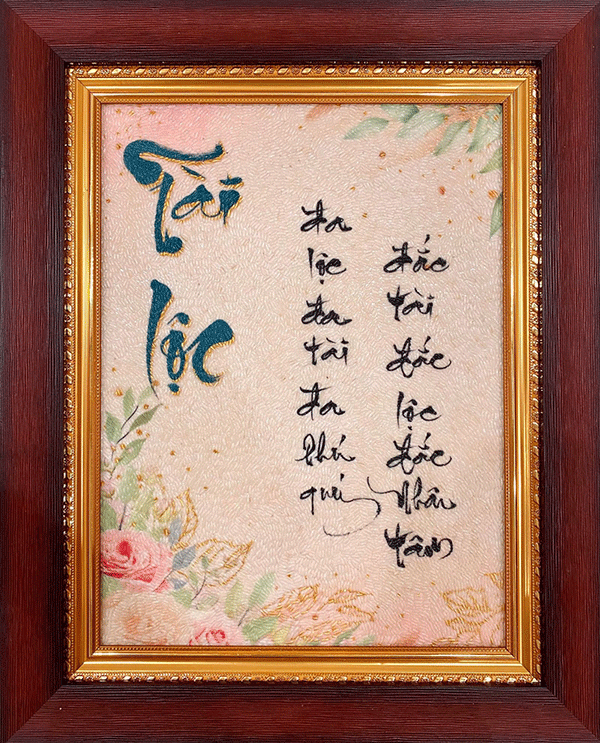 Tài
lộc
đa
lộc
đa
tài
đa
phú
quý
đắc
tài
đắc
lộc
đắc
nhân
tâm